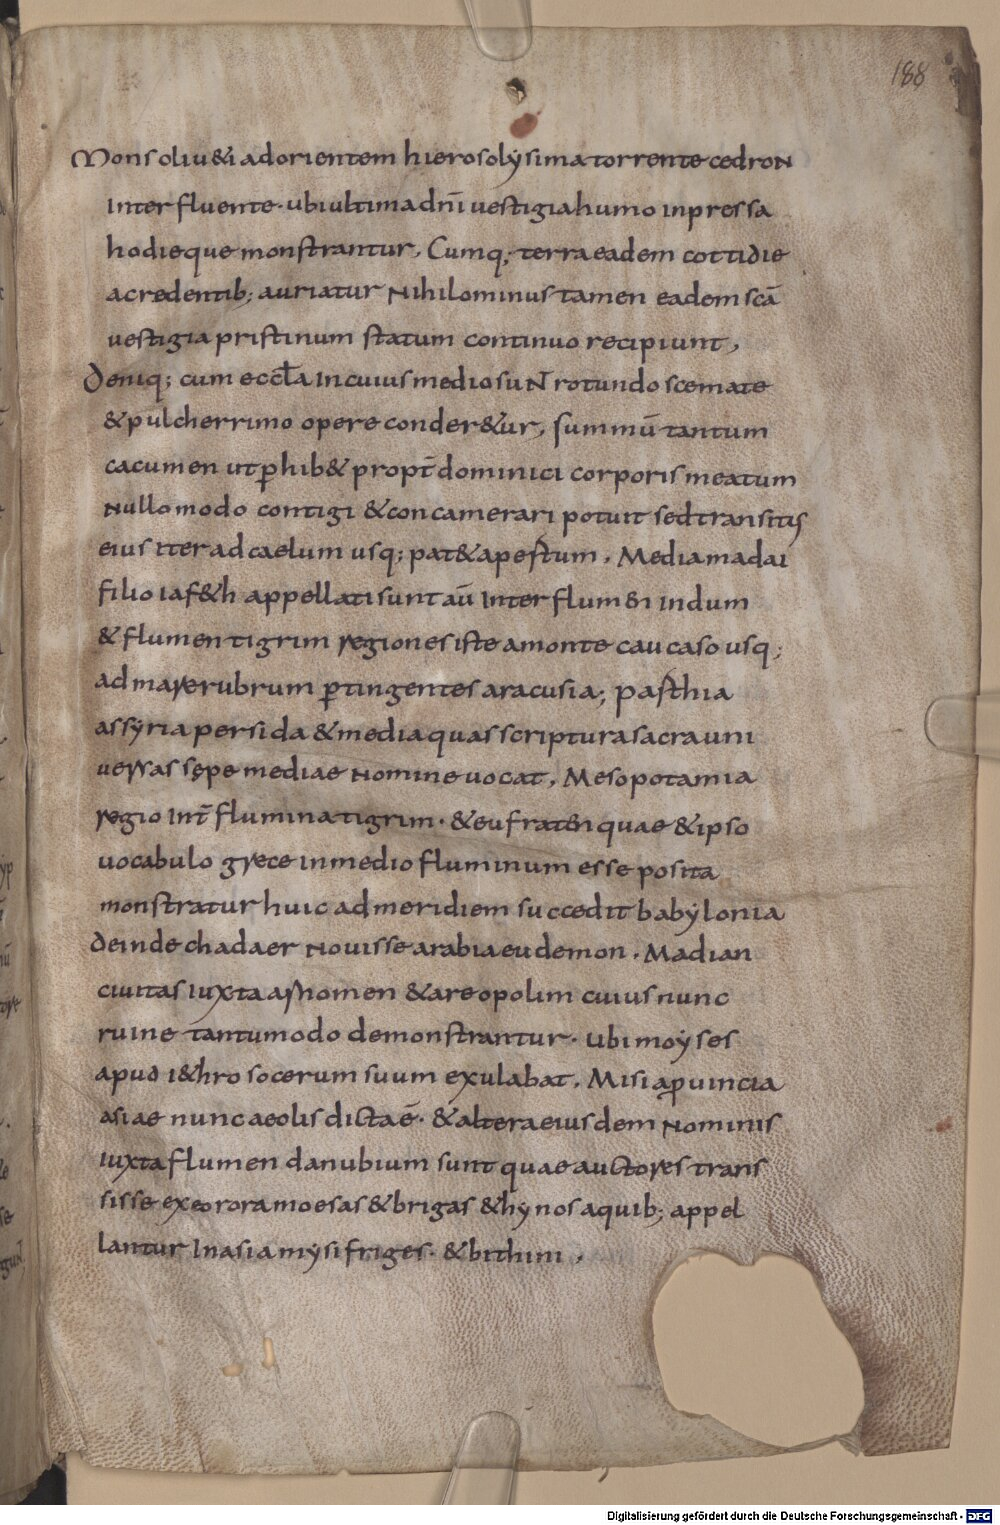 188
Mons oliu&i ad orientem hierosolÿsima torrente cedron
interfluente · ubi ultima dn̄i uestigia humo inpressa
hodieque monstrantur, Cumq; terra eadem cottidie
a credentib; auriatur nihilominus tamen eadem scā
uestigia pristinum statum continuo recipiunt,
Deniq; cum eccl̄a in cuius medio sunt rotundo scemate
& pulcherrimo opere conder&ur, summū tantum
cacumen ut ꝑhib& propt̄ dominici corporis meatum
nullo modo contigi & concamerari potuit sed transitis
eius iter ad caelum usq; pat& apestum, Media madai
filio iaf&h appellati sunt aū inter flumen indum
& flumen tigrim regiones iste a monte caucaso usq;
ad mare rubrum ꝑtingentes aracusia; pasthia
assÿria persida & media quas scriptura sacra uni
uersas sępe mediae nomine uocat, Mesopotamia
regio int̄ flumina tigrim · & eufraten quae & ipso
uocabulo grece in medio fluminum esse posita
monstratur huic ad meridiem succedit babÿlonia
deinde chadaer nouisse arabia eudemon, Madian
ciuitas iuxta arnomen & areopolim cuius nunc
ruine tantumodo demonstrantur · ubi moÿses
apud i&hro socerum suum exulabat, Misia ꝓuincia
asiae nunc aeolis dicta ē · & altera eiusdem nominis
iuxta flumen danubium sunt quae auctores trans
sisse ex eorora moesas & brigas & hÿnos a quib; appel
lantur in asia mÿsi friges · & bithini,
Digitalisierung gefördert durch die Deutsche Forschungsgemeinschaft - DFG